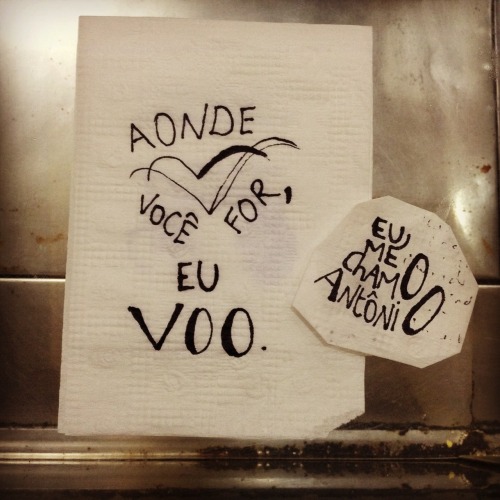 AONDE
VOCÊ FOR,
EU
VOO.
EU
ME
CHAMO
ANTÔNIO